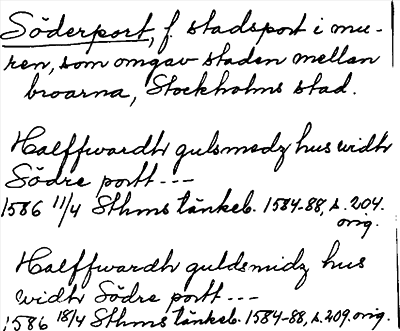 Söderport, f. stadsport i mu-
ren, som omgav staden mellan
broarna, Stockholms stad.
Halffwardh gulsmedz hus widh
Södre portt ---
1586 11/4 Sthms tänkeb. 1584-88, s. 204.
orig.
Halffwardh guldsmidz hus
widh Södre portt ---
1586 18/4 Sthms tänkeb. 1584-88, s. 209. orig.